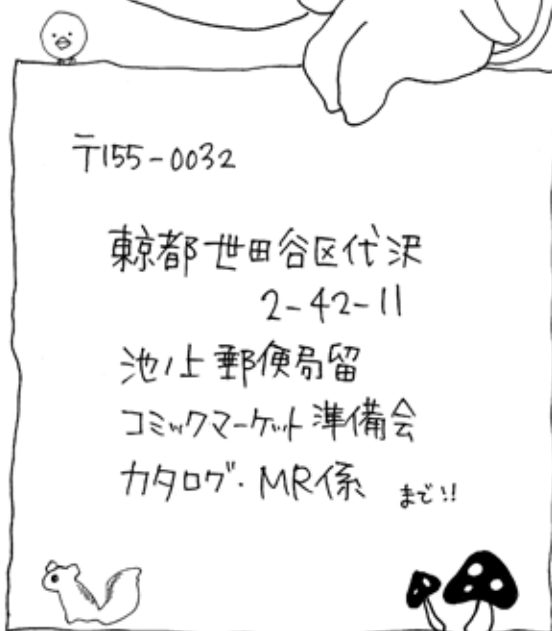 〒155-0032
東京都世田谷区代沢
2-42-11
池ノ上郵便局留
コミックマーケット準備会
カタログ・MR係 まで!!